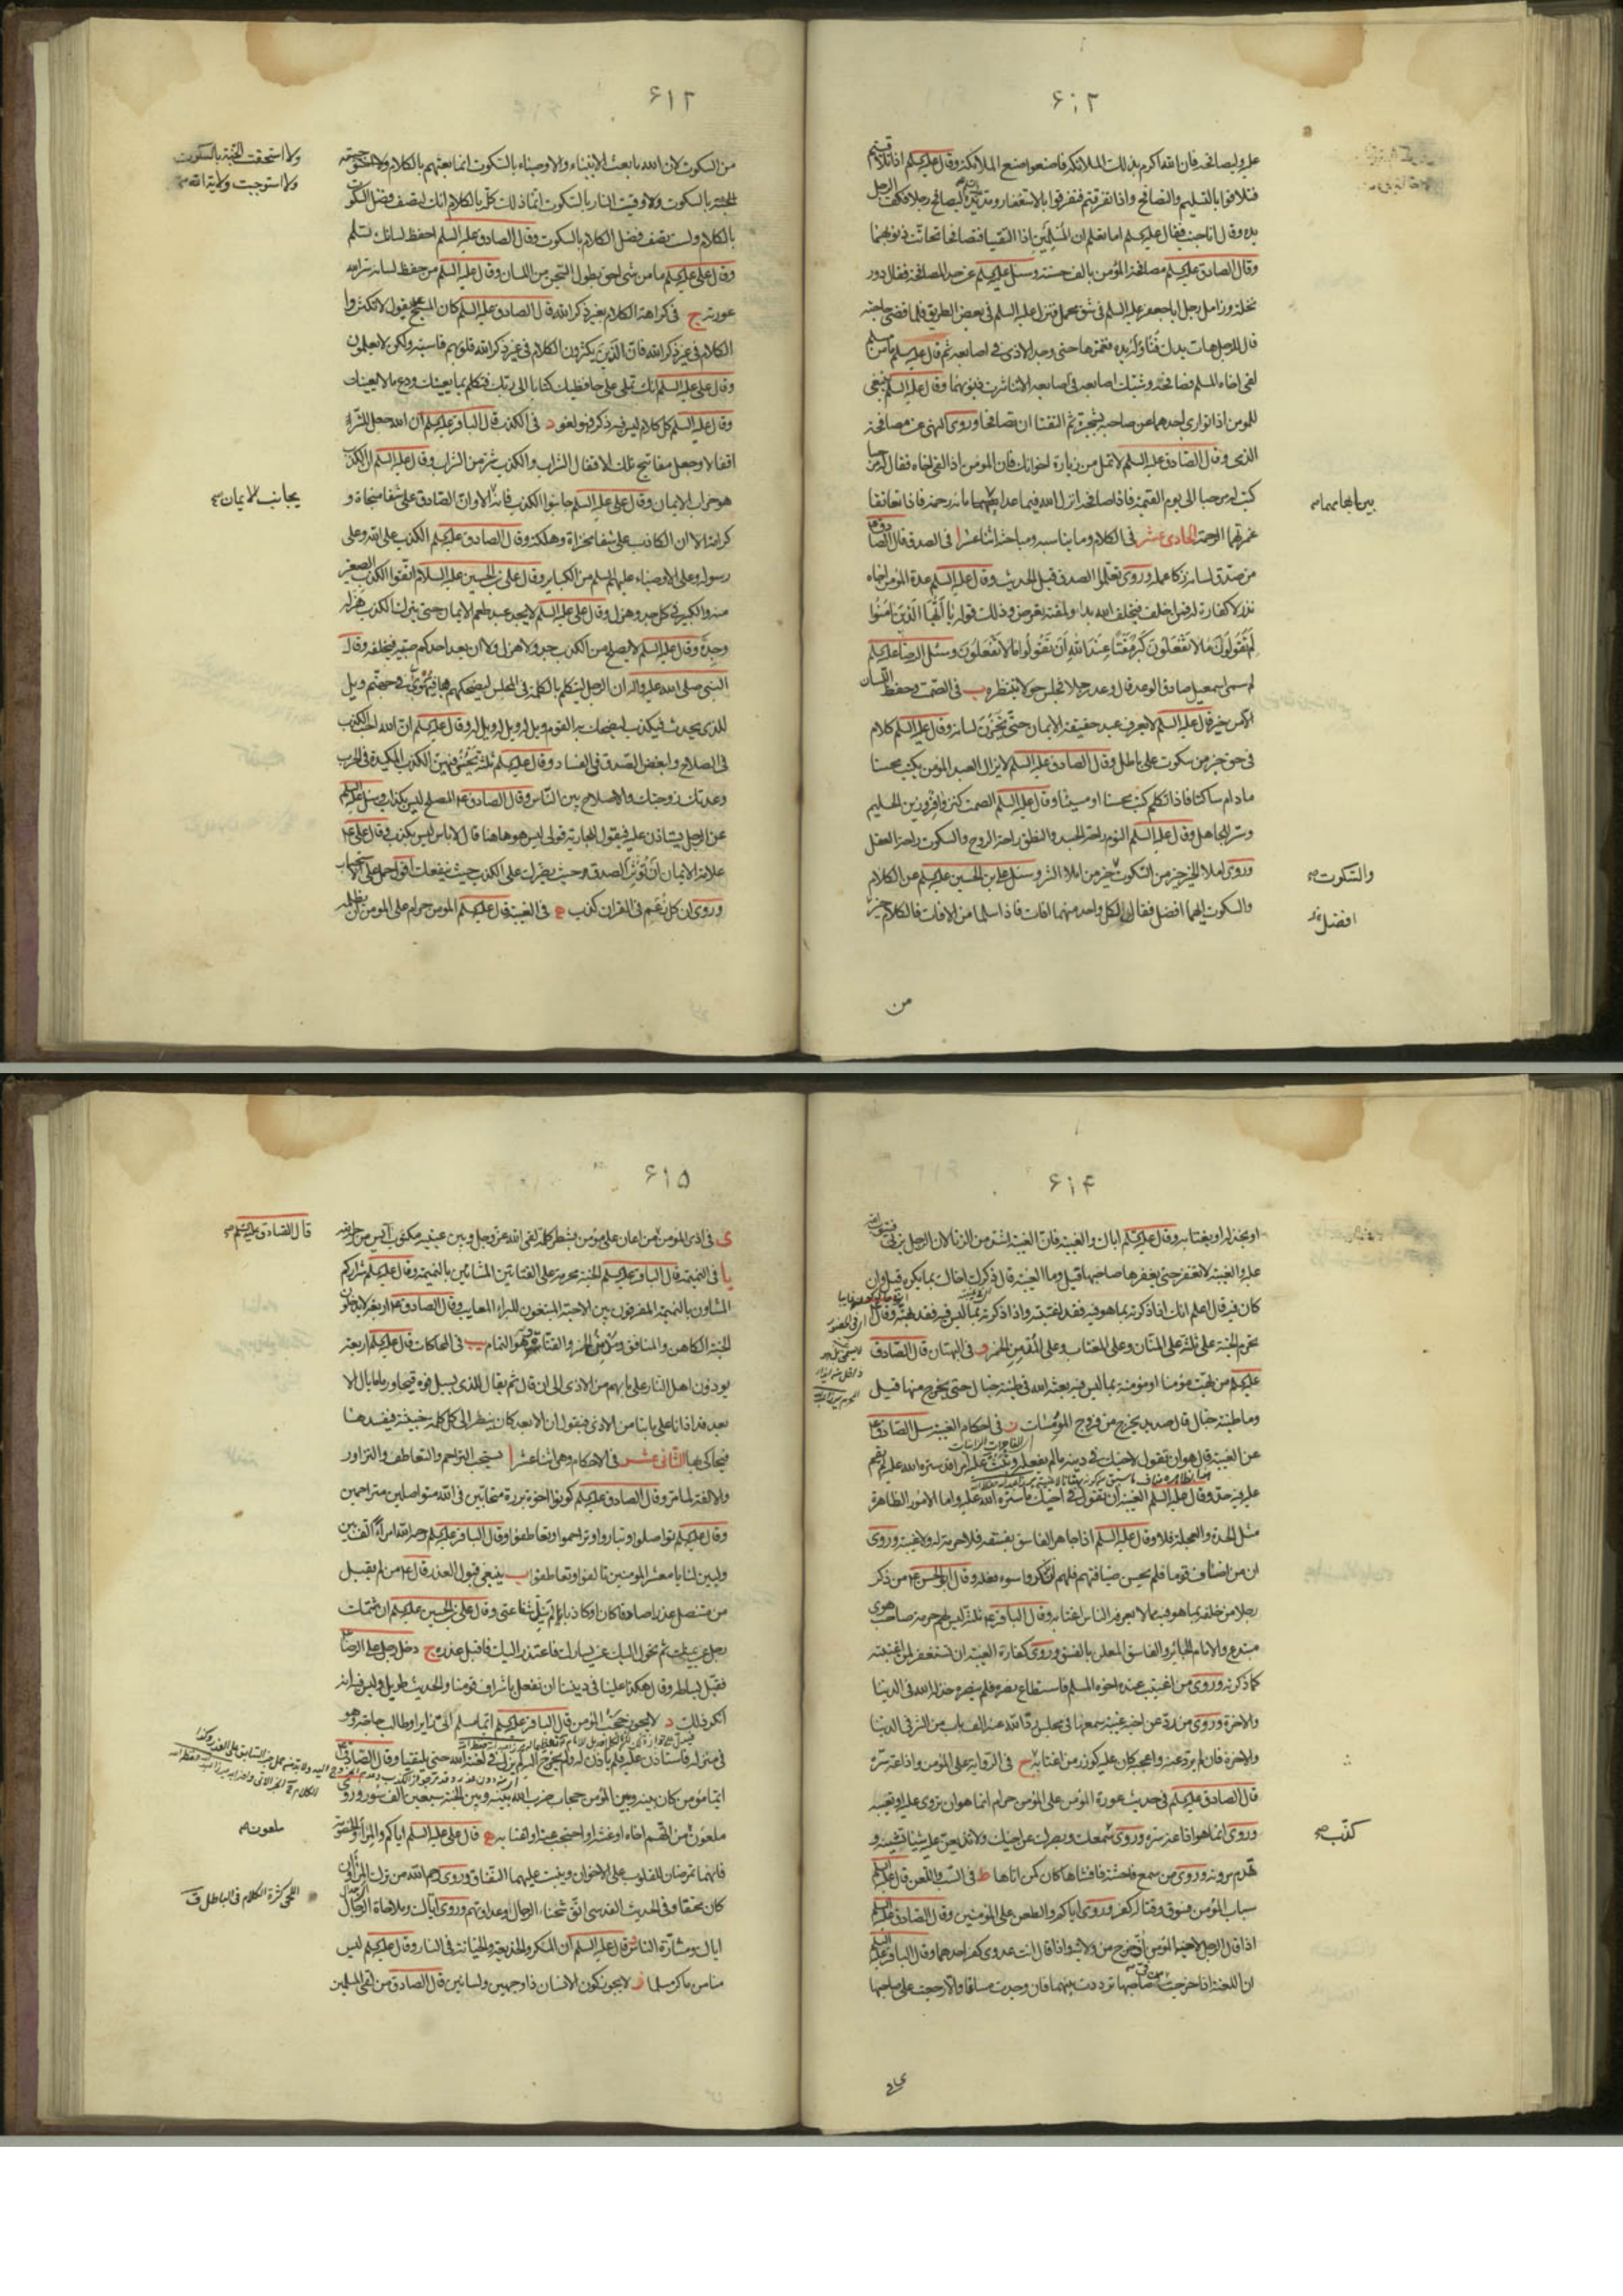 ۶۱۲
عليه وليصافحه فان الله اكرم بذلك الملائكة فاصنعوا صنع الملائكة وقال عليه السلم اذا تلاقيتم
فتلاقوا بالتسليم والتصافح واذا تفرقتم فتفرقوا بالاستغفار ليصافح رجلا فكف الرجل
يده وقال انا جنب فقال عليه السلم اما تعلم ان المسلمين اذا التقيا فتصافحا تحاتت ذنوبهما
وقال الصادق عليه السلم مصافحة المؤمن بالف حسنة وسئل عليه السلم عن حد المصافحة فقال دور
نخلة وزامل رجل ابا جعفر عليه السلم في شق محمل فنزل عليه السلم في بعض الطريق فلما قضى حاجته
قال للرجل هات يدك فناوله يده فغمزها حتى وجد الاذى في اصابعه ثم قال عليه السلم ما من مسلم
لقى اخاه المسلم فصافحه وشبك اصابعه في اصابعه الا تناثرت ذنوبهما وقال عليه السلم ينبغي
للمؤمن اذا توارى احدهما عن صاحبه بشجرة ثم التقيا ان يتصافحا وروى النهى عن مصافحة
الذمى وقال الصادق عليه السلم لا تمل من زيارة اخوانك فان المؤمن اذا لقى اخاه فقال له مرحبا
كتب له مرحبا الى يوم القيمة فاذا صافحه انزل الله فيما بين ابهاميهما مائة رحمة فاذا تعانقا
غمرتهما الرحمة الحادى عشر في الكلام وما يناسبه ومباحثه اثنا عشر ا في الصدق قال الصادق ع
من صدق لسانه زكا عمله وروى تعلموا الصدق قبل الحديث وقال عليه السلم عدة المؤمن اخاه
نذر لا كفارة له فمن اخلف فبخلف الله بدأ ولمقته تعرض وذلك قوله يا ايها الذين امنوا
لم تقولون ما لا تفعلون كبر مقتا عند الله ان تقولوا ما لا تفعلون وسئل الرضا عليه السلم
لم سمى اسمعيل صادق الوعد قال وعد رجلا فجلس حولا ينتظره ب في الصمت وحفظ اللسان
الا من خير قال عليه السلم لا يعرف عبد حقيقة الايمان حتى يخزن لسانه وقال عليه السلم كلام
في حق خير من سكوت على باطل وقال الصادق عليه السلم لا يزال العبد المؤمن يكتب محسنا
ما دام ساكتا فاذا تكلم كتب محسنا او مسيئا وقال عليه السلم الصمت كنز وافر وزين الحليم
وستر الجاهل وقال عليه السلم النوم راحة الجسد والنطق راحة الروح والسكوت راحة العقل
وروى املاء الخير خير من السكوت خير من املاء الشر وسئل على بن الحسين عليه السلم عن الكلام
والسكوت ايهما افضل فقال لكل واحد منهما افات فاذا سلما من الافات فالكلام خير
والسكوت صح
افضل
من
۶۱۲
من السكوت لان الله ما بعث الانبياء والاوصياء بالسكوت انما بعثهم بالكلام
الجنة بالسكوت ولا وقيت النار بالسكوت انما ذلك كله بالكلام انك لتصف فضل السكوت
بالكلام ولست تصف فضل الكلام بالسكوت وقال الصادق عليه السلم احفظ لسانك تسلم
وقال على عليه السلم ما من شيء احق بطول السجن من اللسان وقال عليه السلم من حفظ لسانه ستر الله
عورته ج في كراهة الكلام بغير ذكر الله قال الصادق عليه السلم كان المسيح ع يقول لا تكثروا
الكلام في غير ذكر الله فان الذين يكثرون الكلام في غير ذكر الله قلوبهم قاسية ولكن لا يعلمون
وقال على عليه السلم انك تملى على حافظيك كتابا الى ربك فتكلم بما يعنيك ودع ما لا يعنيك
وقال عليه السلم كل كلام ليس فيه ذكر فهو لغو د في الكذب قال الباقر عليه السلم ان الله جعل للشر
اقفالا وجعل مفاتيح تلك الاقفال الشراب والكذب شر من الشراب وقال عليه السلم ان الكذب
هو خراب الايمان وقال على عليه السلم جانبوا الكذب فانه الا وان الصادق على شفا منجاة و
كرامة الا ان الكاذب على شفا مخزاة وهلكة وقال الصادق عليه السلم الكذب على الله وعلى
رسوله وعلى الاوصياء عليهم السلم من الكبائر وقال على بن الحسين عليه السلام اتقوا الكذب الصغير
منه والكبير في كل جد وهزل وقال على عليه السلم لا يجد عبد طعم الايمان حتى يترك الكذب هزله
وجده وقال عليه السلم لا يصلح من الكذب جد ولا هزل ولا ان يعد احدكم صبيه فيخلفه وقال
النبى صلى الله عليه واله ان الرجل ليتكلم بالكلمة في المجلس ليضحكهم بها فيهوى في جهنم ويل
للذى يحدث فيكذب ليضحك به القوم ويل له ويل له ويل له وقال عليه السلم ان الله احب الكذب
في الصلاح وابغض الصدق في الفساد وقال عليه السلم ثلثة يحسن فيهن الكذب المكيدة في الحرب
وعدتك زوجتك والاصلاح بين الناس وقال الصادق ع المصلح ليس بكذاب وسئل عليه السلم
عن الرجل يستاذن عليه فيقول للجارية قولى ليس هو هاهنا قال لا باس ليس بكذب وقال على ع
علامة الايمان ان تؤثر الصدق وحيث يضر بك على الكذب حيث ينفعك
وروى ان كل زعم في القران كذب ه في الغيبة قال عليه السلم المؤمن حرام على المؤمن ان يظلمه
ولا استحقت الجنة بالسكوت
ولا استوجبت ولاية الله صح
يجانب الايمان صح
۶۱۴
او يخذله او يغتابه وقال عليه السلم اياك والغيبة فان الغيبة اشد من الزنا لان الرجل يزنى فيتوب الله
عليه والغيبة لا تغفر حتى يغفرها صاحبها قيل وما الغيبة قال ذكرك اخاك بما يكره قيل وان
كان فيه قال اعلم انك اذا ذكرته بما هو فيه فقد اغتبته واذا ذكرته بما ليس فيه فقد بهته وقال
تحرم الجنة على ثلثة على المنان وعلى المغتاب وعلى مدمن الخمر و في البهتان قال الصادق
عليه السلم من بهت مؤمنا او مؤمنة بما ليس فيه بعثه الله في طينة خبال حتى يخرج منها قيل
وما طينة خبال قال صديد يخرج من فروج المومسات ز في احكام الغيبة سئل الصادق ع
عن الغيبة قال هو ان تقول لاخيك في دينه ما لم يفعل وتبث عليه امرا قد ستره الله عليه لم يقم
عليه فيه حد وقال عليه السلم الغيبة ان تقول في اخيك ما ستره الله عليه واما الامور الظاهرة
مثل الحدة والعجلة فلا وقال عليه السلم اذا جاهر الفاسق بفسقه فلا حرمة له ولا غيبة وروى
ان من اضاف قوما فلم يحسن ضيافتهم فلهم ان يذكروا سوء فعله وقال ابو الحسن ع من ذكر
رجلا من خلفه بما هو فيه مما لا يعرفه الناس اغتابه وقال الباقر ع ثلثة ليس لهم حرمة صاحب هوى
مبتدع والامام الجائر والفاسق المعلن بالفسق وروى كفارة الغيبة ان تستغفر لمن اغتبته
كما ذكرته وروى من اغتيب عنده اخوه المسلم فاستطاع نصره فلم ينصره خذله الله في الدنيا
والاخرة وروى من رد عن اخيه غيبة سمعها في مجلس رد الله عنه الف باب من الشر في الدنيا
والاخرة فان لم يرد عنه واعجبه كان عليه كوزر من اغتابه ح في الرواية على المؤمن واذاعة سره
قال الصادق عليه السلم في حديث عورة المؤمن على المؤمن حرام انما هو ان يروى عليه او يعيبه
وروى انما هو اذاعة سره وروى سمعك وبصرك عن اخيك ولا تذيعن عليه شيئا تشينه و
تهدم مروته وروى من سمع فاحشة فافشاها كان كمن اتاها ط في السب واللعن قال عليه السلم
سباب المؤمن فسوق وقتاله كفر وروى اياكم والطعن على المؤمنين وقال الصادق عليه السلم
اذا قال الرجل لاخيه المؤمن اف خرج من ولايته واذا قال انت عدوى كفر احدهما وقال الباقر عليه السلم
ان اللعنة اذا خرجت من صاحبها ترددت بينهما فان وجدت مساغا والا رجعت على صاحبها
كذب صح
۶۱۵
ى في اذى المؤمن من اعان على مؤمن بشطر كلمة لقى الله عز وجل وبين عينيه مكتوب آيس من رحمة الله
يا في النميمة قال الباقر عليه السلم الجنة محرمة على القتاتين المشائين بالنميمة وقال عليه السلم شراركم
المشاؤن بالنميمة المفرقون بين الاحبة المبتغون للبراء المعايب وقال الصادق ع اربعة لا يدخلون
الجنة الكاهن والمنافق ومدمن الخمر والقتات وهو النمام يب في المحاكات قال عليه السلم اربعة
يؤذون اهل النار على ما بهم من الاذى الى ان قال ثم يقال للذى يسيل فوه قيحا ودما ما بال الا
بعد قد اذانا على ما بنا من الاذى فيقول ان الابعد كان ينظر الى كل كلمة خبيثة
فيحاكى بها الثانى عشر في الاحكام وهى اثنا عشر ا يستحب التراحم والتعاطف والتزاور
والالفة لما مر وقال الصادق عليه السلم كونوا اخوة بررة متحابين في الله متواصلين متراحمين
وقال عليه السلم تواصلوا وتباروا وتراحموا وتعاطفوا وقال الباقر عليه السلم رحم الله امرأ الف بين
وليين لنا يا معشر المؤمنين تالفوا وتعاطفوا ب ينبغي قبول العذر قال ع من لم يقبل
من متنصل عذرا صادقا كان او كاذبا لم ينل شفاعتى وقال على بن الحسين عليه السلم ان شتمك
رجل عن يمينك ثم تحول اليك عن يسارك فاعتذر اليك فاقبل عذره ج دخل رجل على الرضا ع
فقبل بساطه وقال هكذا علينا في ديننا ان نفعل باشراف قومنا والحديث طويل وليس فيه انه
انكر ذلك د لا يجوز حجب المؤمن قال الباقر عليه السلم ايما مسلم اتى مسلما زائرا او طالب حاجة وهو
في منزله فاستاذن عليه فلم ياذن له ولم يخرج اليه لم يزل في لعنة الله حتى يلتقيا وقال الصادق ع
ايما مؤمن كان بينه وبين المؤمن حجاب ضرب الله بينه وبين الجنة سبعين الف سور وروى
ملعون من اتهم اخاه او غشه او احتجب عنه او اهانه به ه قال على عليه السلم اياكم والمراء والخصومة
فانهما يمرضان القلوب على الاخوان وينبت عليهما النفاق وروى رحم الله من ترك المراء وان
كان محقا وفي الحديث القدسى اتق شحناء الرجال وعداوتهم وروى اياك وملاحاة الرجال
اياك ومشارة الناس و قال عليه السلم ان المكر والخديعة والخيانة في النار وقال عليه السلم ليس
منا من ماكر مسلما ز لا يجوز كون الانسان ذا وجهين ولسانين قال الصادق من لقى المسلمين
قال الصادق عليه السلم صح
ملعون صح
اللحى كثرة الكلام في الباطل ق